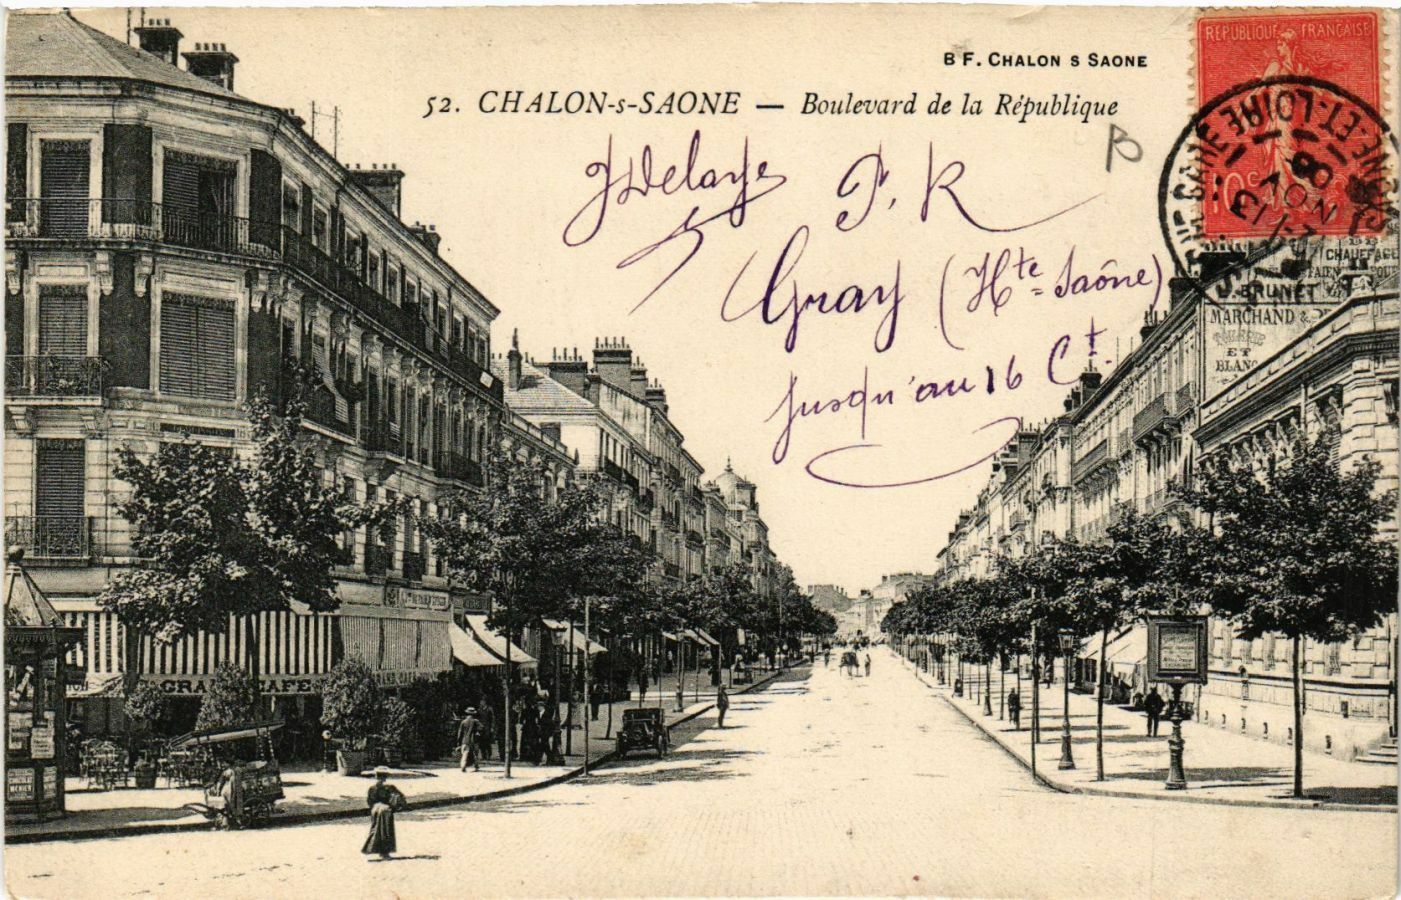 B F. CHALON S SAONE
52. CHALON-s-SAONE — Boulevard de la République
RÉPUBLIQUE FRANÇAISE
10 c
GARE
SAONE-ET-LOIRE
08
J Delaye
P. R
Gray (Hte-Saône)
Jusqu'au 16 Ct.
CHAUFFAGE
BRUNET
MARCHAND
ET
BLANC
GRAND CAFE
CHOCOLAT
MENIER